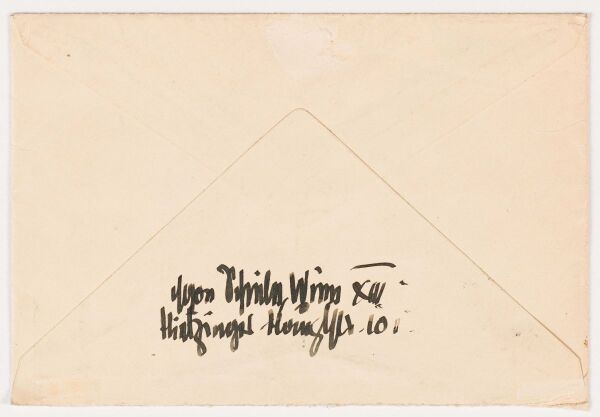 Egon Schiele, Wien XIII.
Hietzinger Hauptstr 101.